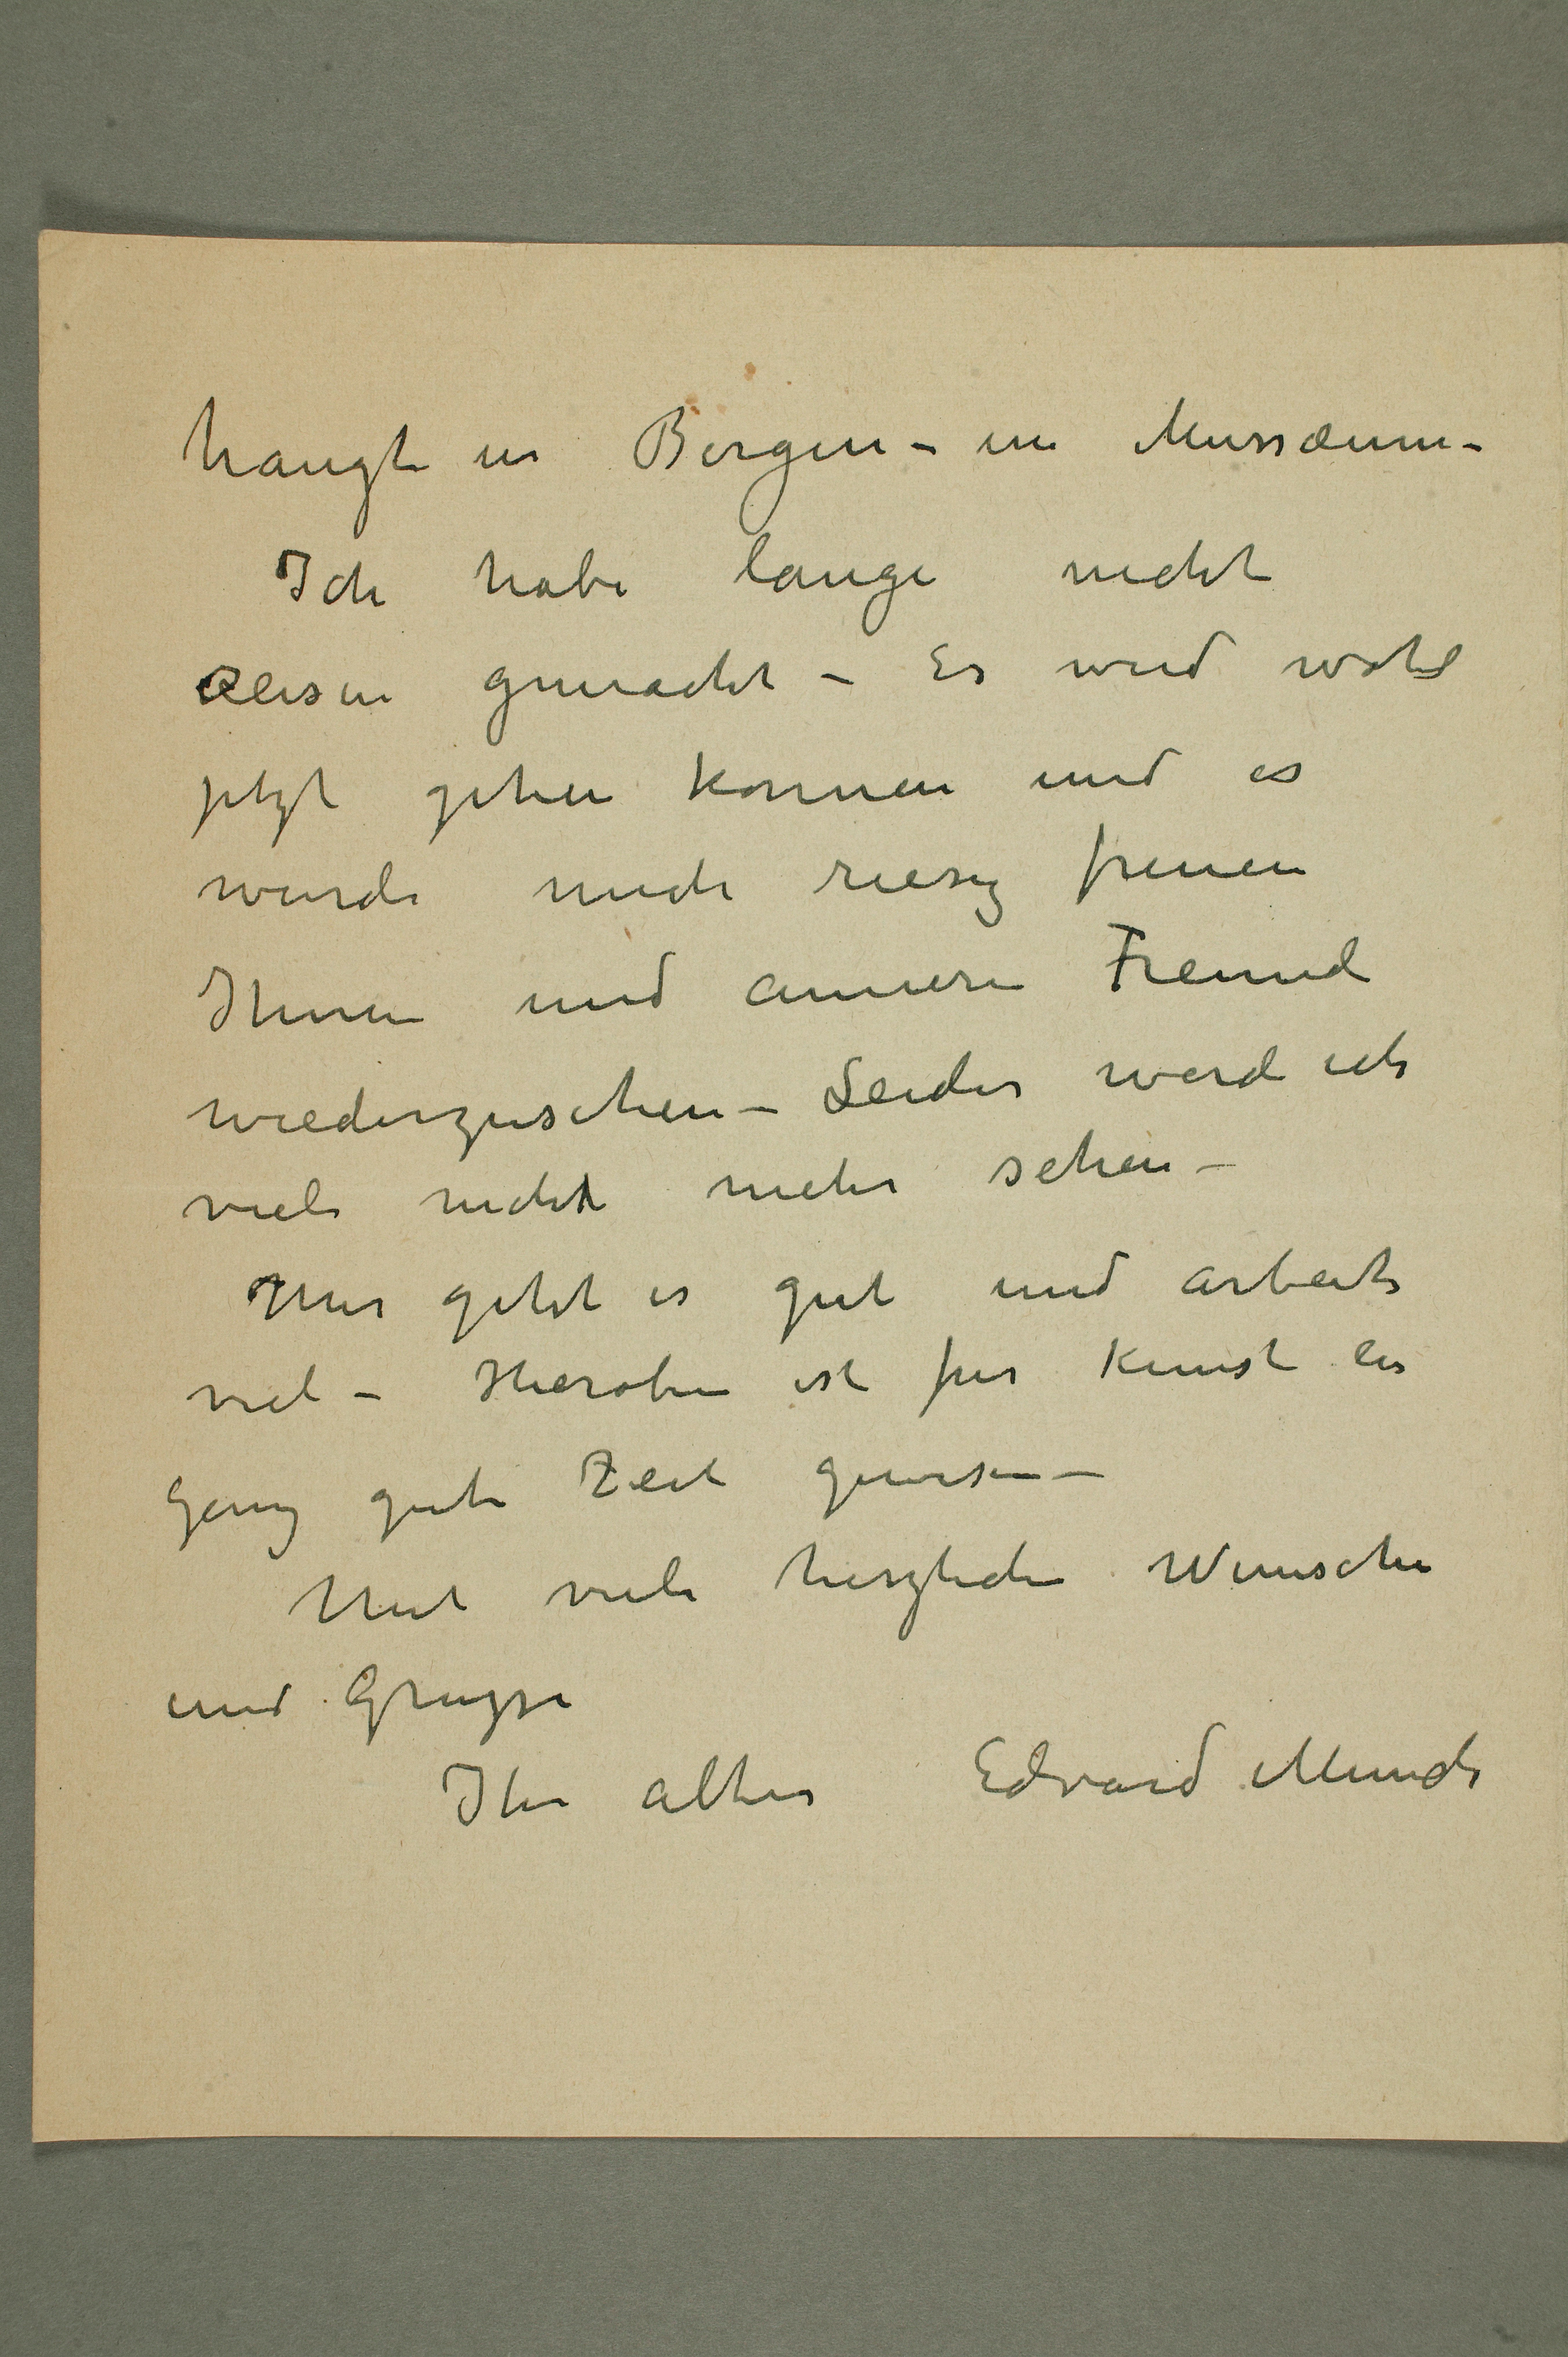 hangt in Bergen – im Mussæum –
Ich habe lange nicht
Reisen gemacht – Es wird wohl
jetzt gehen konnen und es
wurde mich riesig freuen
Ihnen und anneren Freunde
wiederzusehen – Leider werde ich
viele nicht mehr sehen –
Mir geht es gut und arbeite
viel – Hieroben ist fur Kunst ein
ganz gute Zeit gewesen –
Mit viele herzlichen Wunsche
und Grusse
Ihr alter Edvard Munch